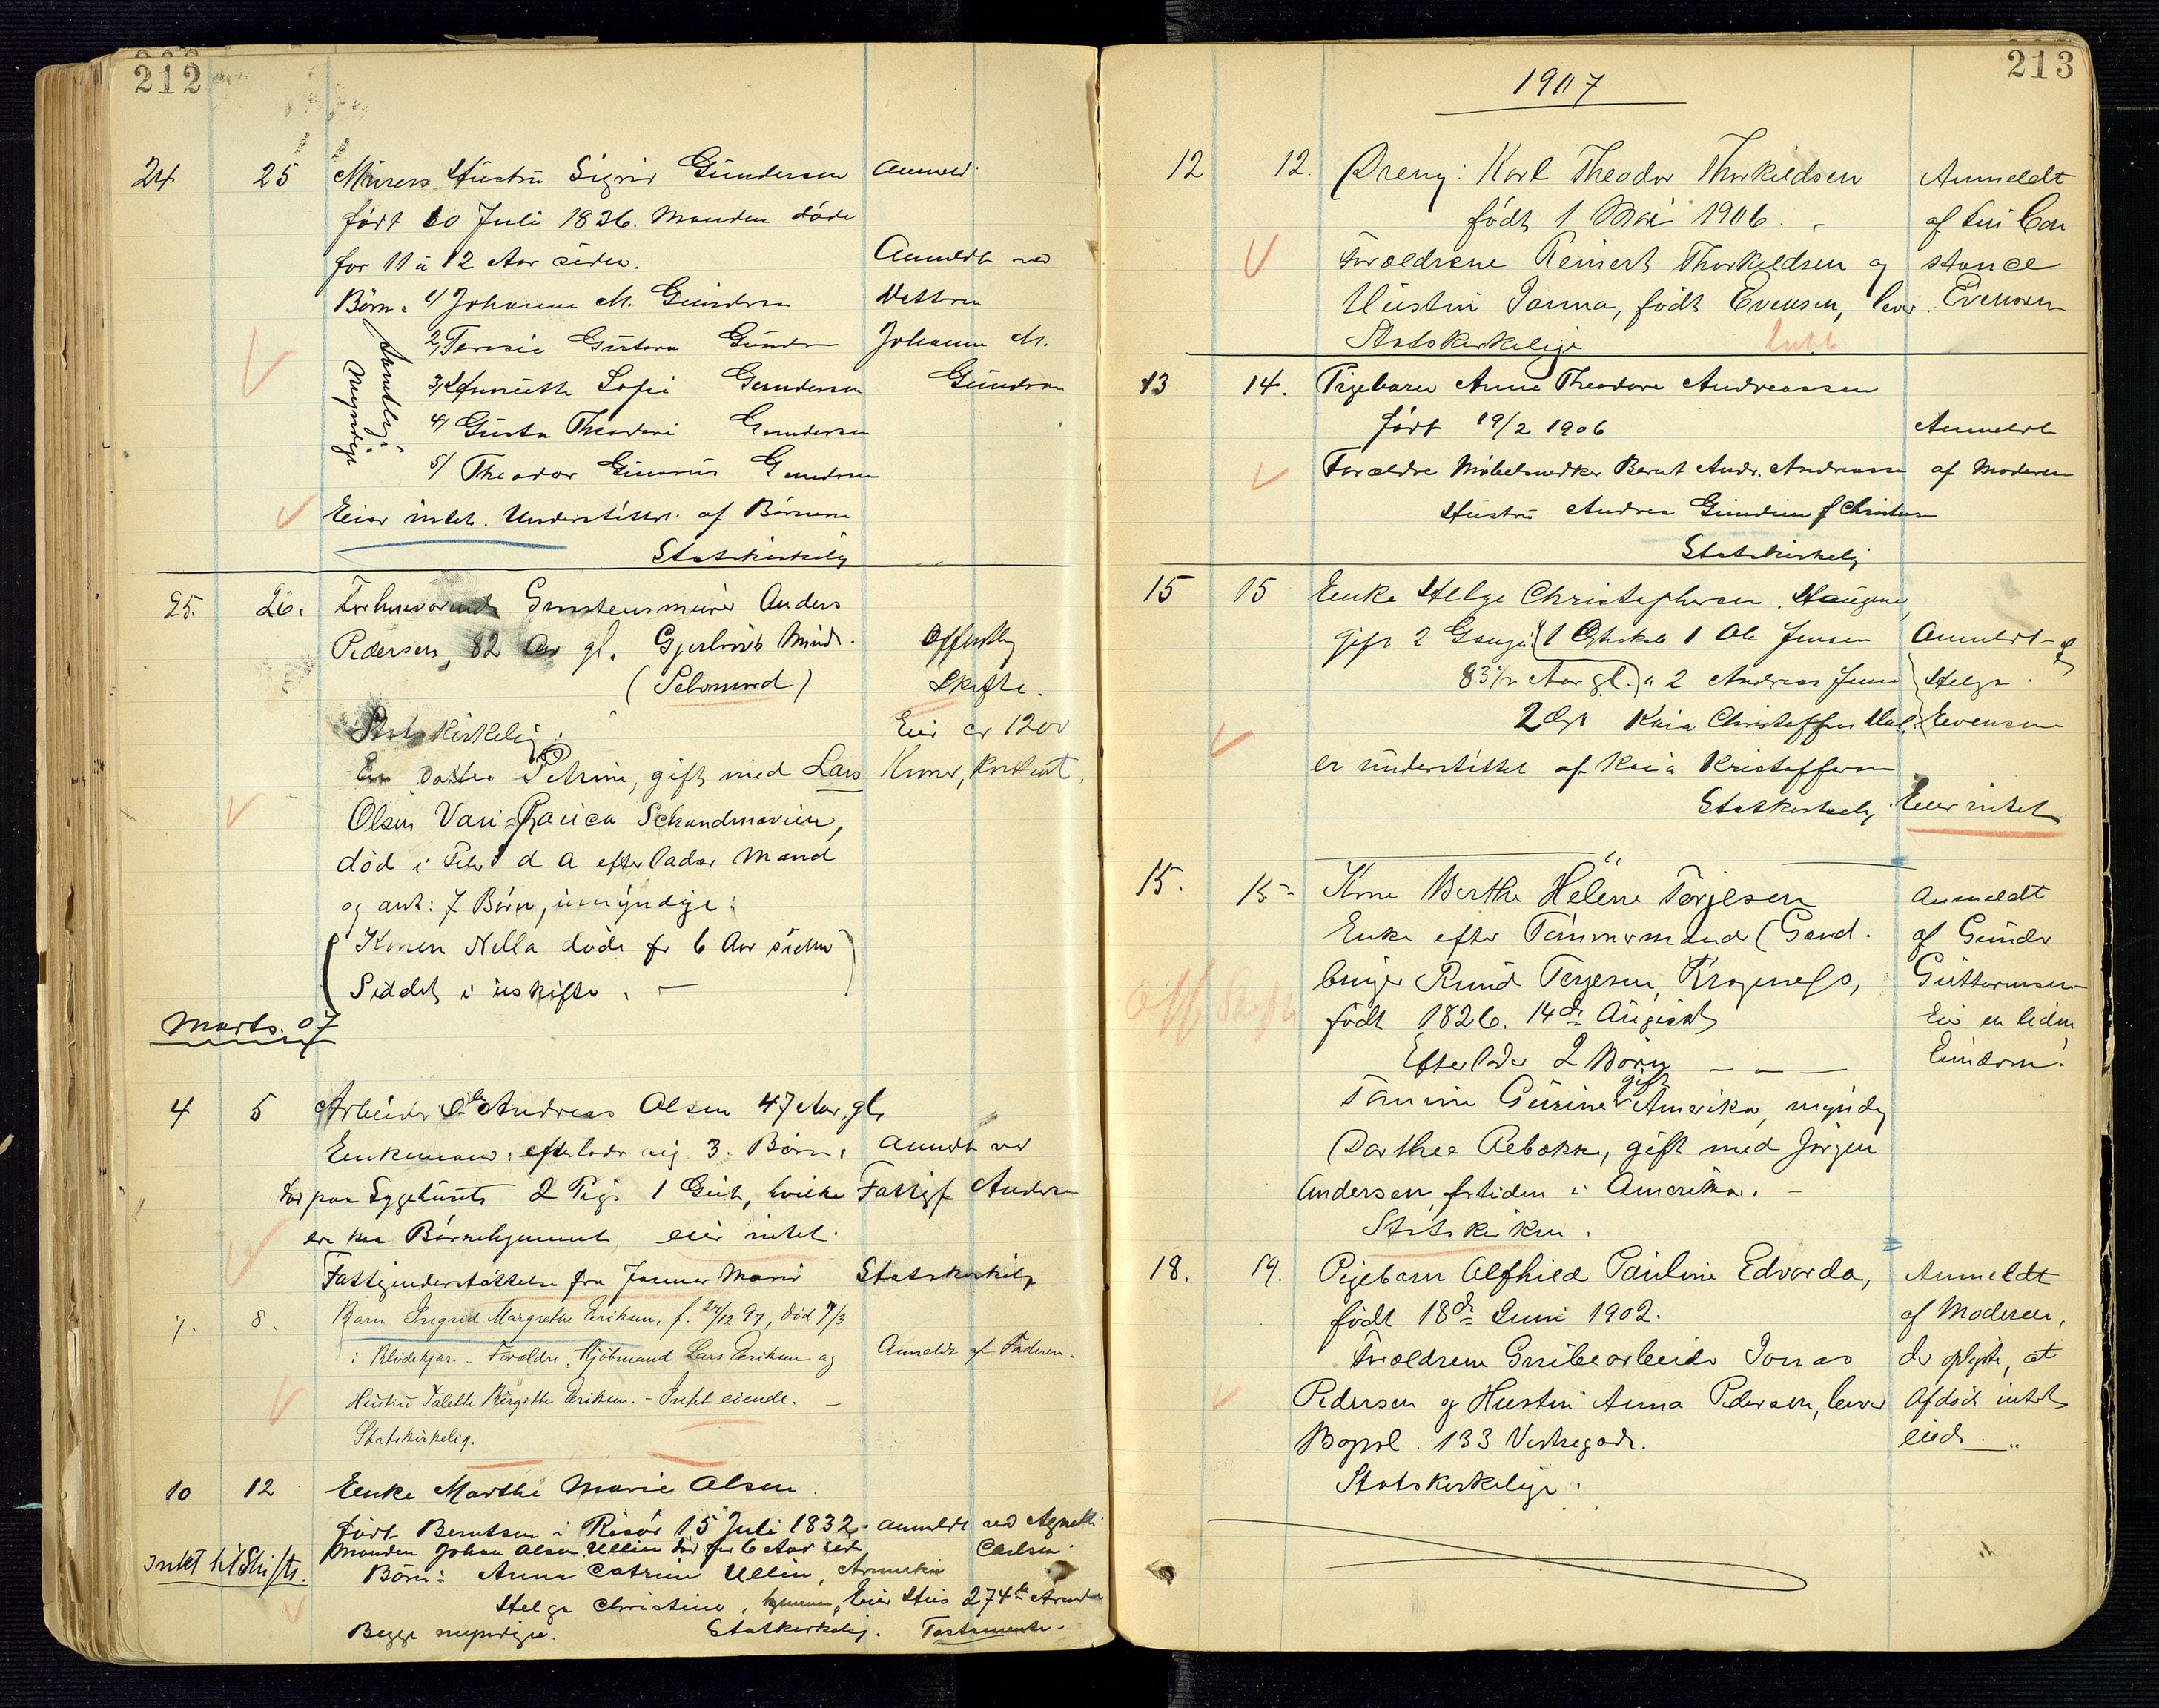 212
24 25 Murers Hustru Sigrid Gundersen Anmeld.
født 10 Juli 1836. Manden døde
for 11 à 12 Aar siden. Anmeldt ved
Børn: 1/ Johanne M. Gundersen Datteren
2, Teresie Gustava Gundersen Johanne M.
3, Sofie Gundersen Gundersen
4/ Gusta Theodore Gundersen
5/ Theodor Gundersen
Samtlige Myndige
Eier intet. Understøttet af Børnene
Statskirkelig
25. 26. Forhenværende Anders
Pedersen, 82 Aar gl. Offentlig
(Selvmord) Skifte.
Statskirkelig. Eier ca 1200
En Datter Petrine, gift med Lars Kroner, kontant.
Olsen
død i Febr d A efterlader Mand
og ant: 7 Børn, umyndige:
(Konen Nella døde for 6 Aar siden
Siddet i uskifte. —)
Marts. 07
4 5 Arbeider Ole Andreas Olsen 47 Aar gl.
Enkemand: efterlader sig 3. Børn: Anmeldt ved
død paa Sygehuset 2 Piger 1 Gut, hvilke Fattigf Andersen
ere paa Børnehjemmet, eier intet.
Fattigunderstøttelse fra Januar Maaned Statskirkelig
7. 8. Barn Ingrid Margrethe Eriksen, f. 24/12 97, død 7/3
i Blødekjær. - Forældre, Kjøbmand Lars Eriksen og Anmeldt af Faderen.
Hustru Valette Birgitte Eriksen. - Intet eiende. —
Statskirkelig.
10 12 Enke Marthe Marie Olsen.
født Berntsen i Risør 15 Juli 1832. Anmeldt ved Agnethe
Manden Johan Olsen Ullin død for 6 Aar siden Carlsen.
Intet til Skifte. Børn: Anna Catrine Ullin, Amerika
Helga Christine, hjemme, Eier Hus 274
Begge myndige. Statskirkelig. Testamente.
213
1907
12 12. Dreng: Karl Theodor Thorkildsen Anmeldt
født 1 Mai 1906. af Fru Con
Forældrene Reinert Thorkildsen og stance
Hustru Janna, født Evensen, lever. Evensen
Statskirkelige
13 14. Pigebarn Anne Theodore Andreassen
født 19/2 1906 Anmeldt
Forældre Møbelsnedker Bernt Andr. Andreassen af Moderen
Hustru Andrea f Christensen
Statskirkelig
15 15 Enke Helge Christophersen. Haugene,
gift 2 Gange: 1 Ægteskab 1 Ole Jensen Anmeldt af
83 1/2 Aar gl. " 2 Andreas Helga
2 Ægt Kaia Christoffersen Evensen
er understøttet af Kaia Kristoffersen
Statskirkelig. Eier intet
15. 15- Kone Berthe Helene Terjesen Anmeldt
Enke efter Tømmermand (Gaard- af Gunder
bruger Knud Terjesen, Kragenefs, Guttormsen
født 1826. 14de August Eier en liden
Off Skifte
Efterlader 2 Børn — — — Eiendom!
Tomine Gurine gift Amerika, myndig
Dorthea Rebekka, gift med Jørgen
Andersen, fortiden i Amerika. -
Statskirken.
18. 19. Pigebarn Alfhild Pauline Edvarda, Anmeldt
født 18de Juni 1902. af Moderen,
Forældrene Grubearbeider Jonas der oplyste, at
Pedersen og Hustru Anna Pedersen, lever Afdøde intet
Bopæl. 133 Vestregade. eiede. —"
Statskirkelige.